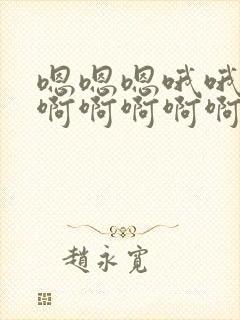 嗯嗯嗯哦哦
啊啊啊啊啊
趙永寬